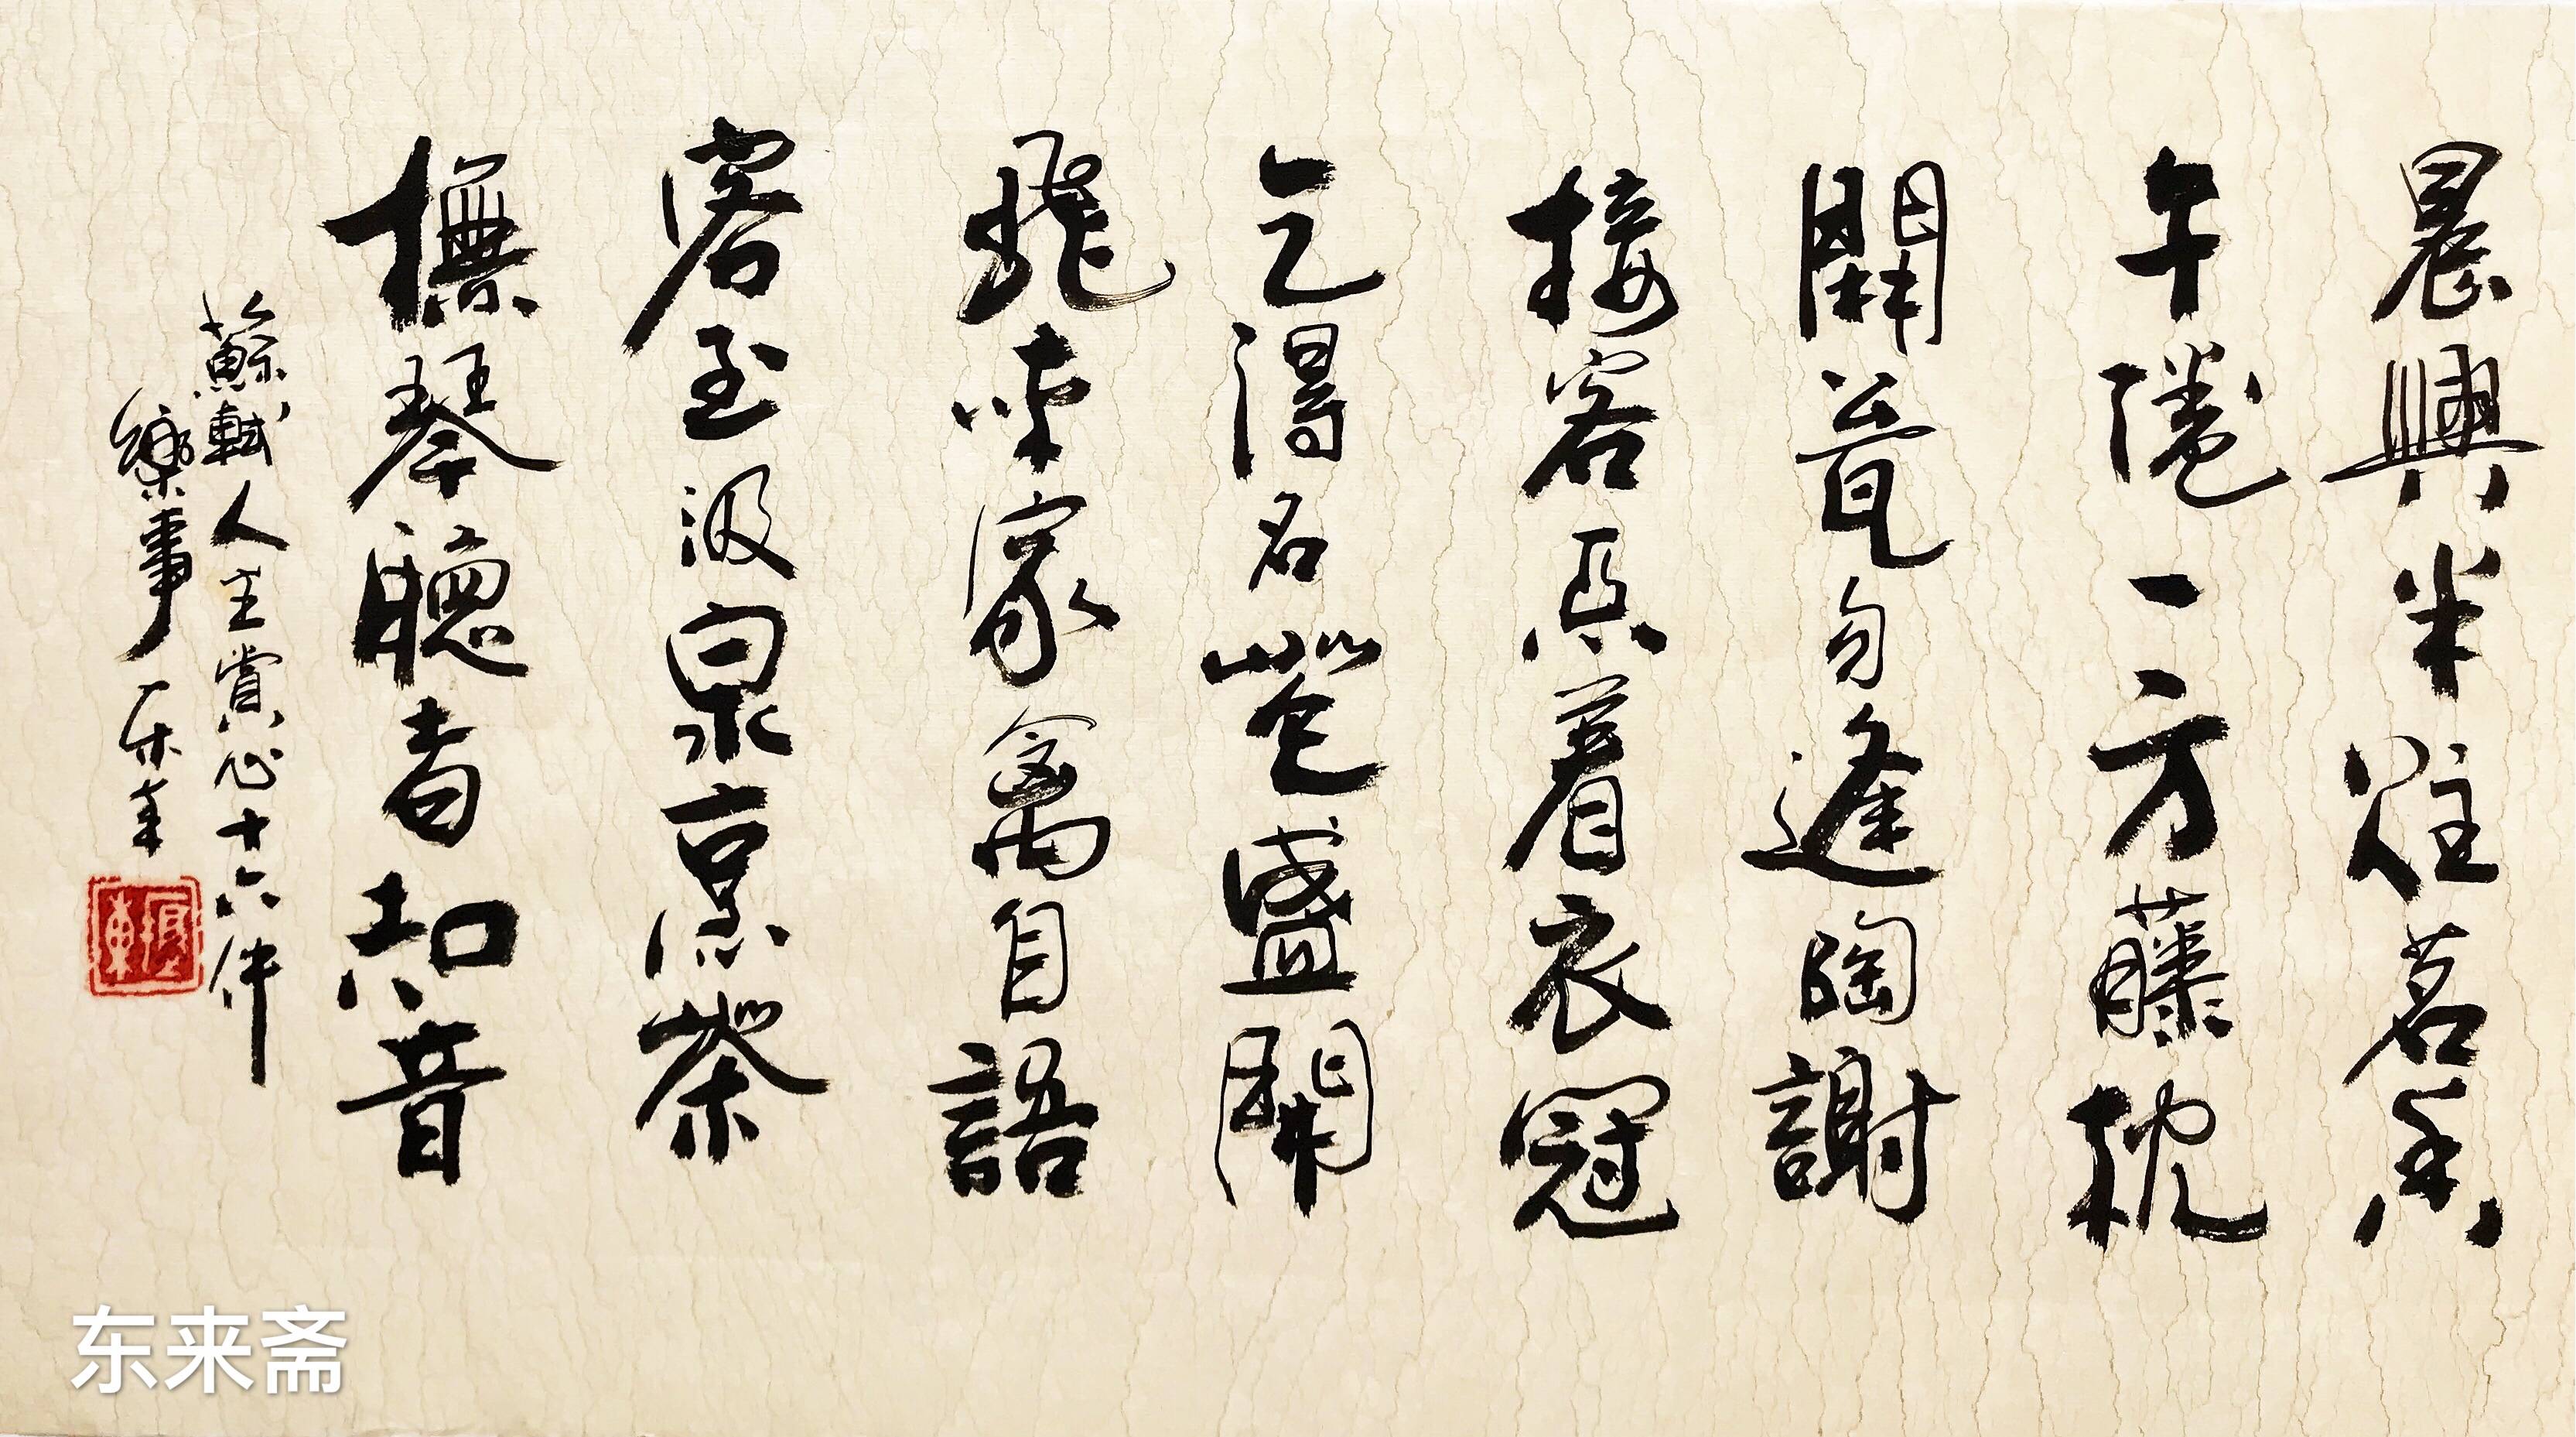 晨興半炷茗香
午倦一方藤枕
開甕勿逢陶謝
接客不着衣冠
乞得名花盛開
飛來家禽自語
客至汲泉烹茶
撫琴聽者知音
蘇軾人生賞心十六件
樂事
东来斋